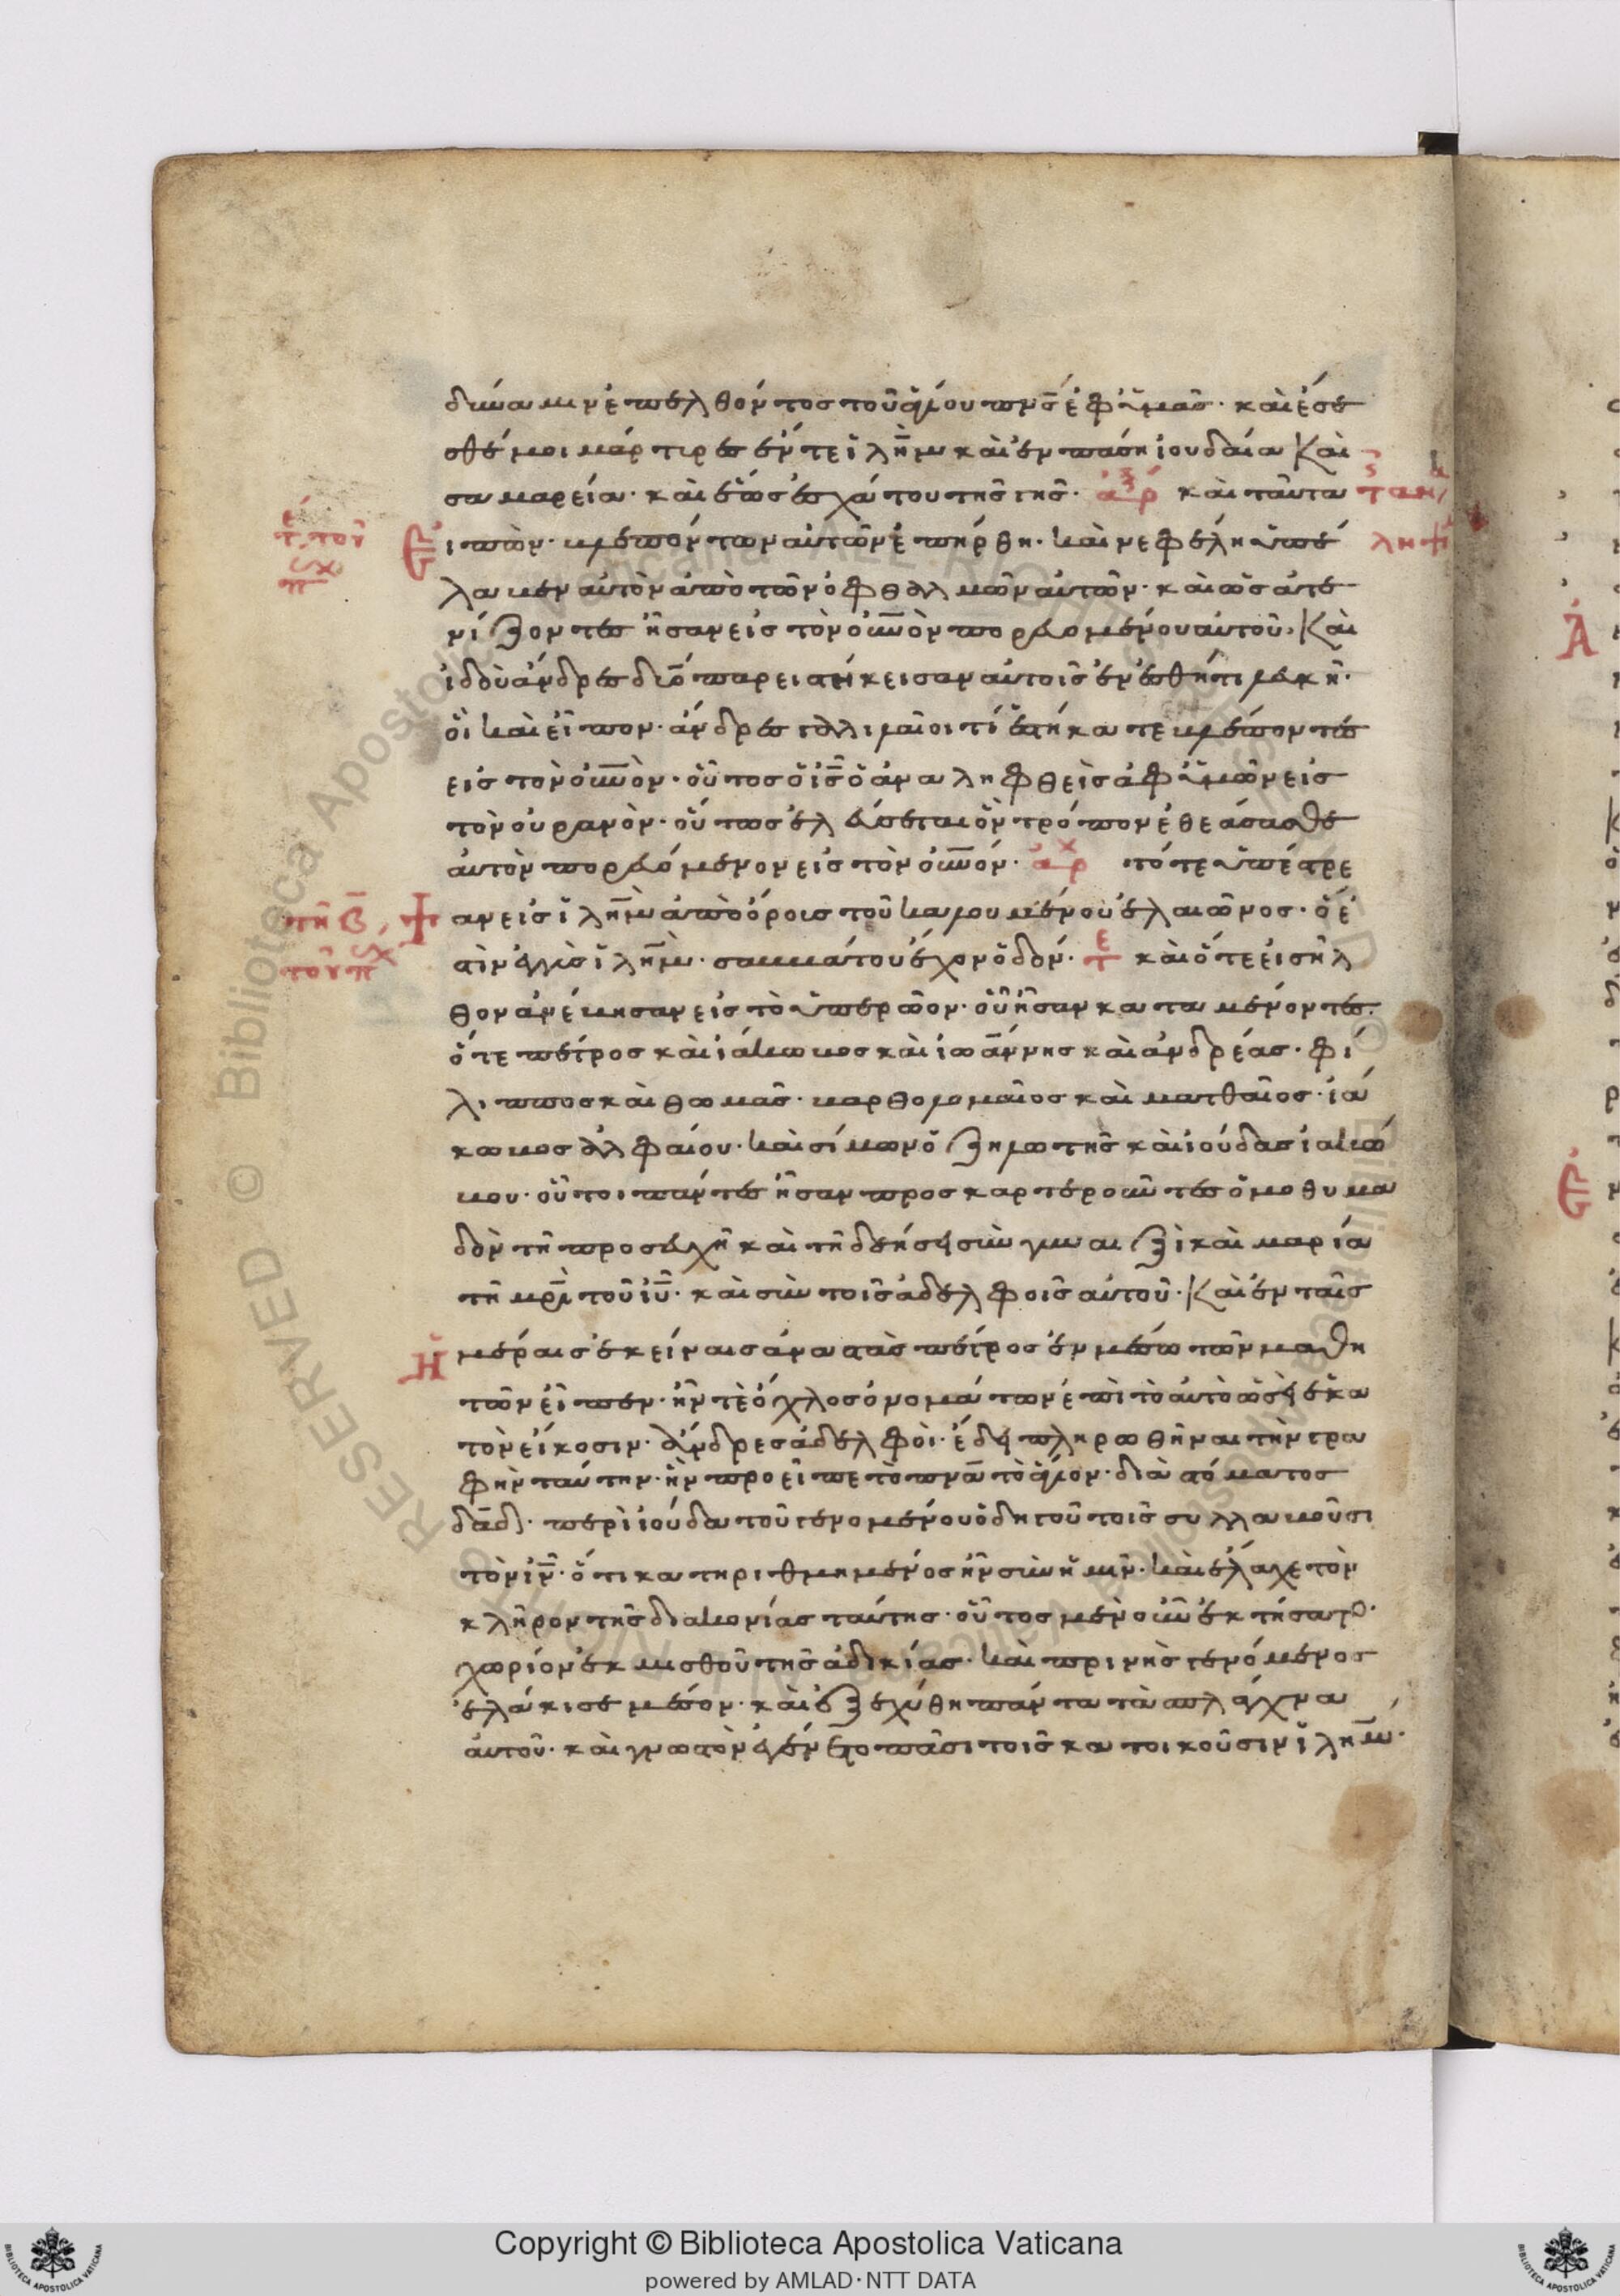 δύναμιν ἐπελθόντος τοῦ ἁγίου πνς ἐφ ὑμᾶς· καὶ ἔσε
σθέ μοι μάρτυρες ἔν τε ἱλημ καὶ ἐν πάση ἰουδαία καὶ
σαμαρεία· καὶ ἕως ἐσχάτου τῆς γῆς· καὶ ταῦτα
ειπὼν· βλεπόντων αὐτῶν ἐπήρθη· καὶ νεφέλη ὑπέ
λαβεν αὐτὸν ἀπὸ τῶν ὀφθαλμῶν αὐτῶν· καὶ ὡς ἀτε
νίζοντες ἦσαν εἰς τὸν οὐνον πορευομένου αὐτοῦ· καὶ
ἰδοὺ ἄνδρες δύο παρειστήκεισαν αὐτοῖς ἐν ἐσθῆτι λευκῆ·
οἳ καὶ εἶπον· ἄνδρες γαλιλαῖοι τί ἑστήκατε βλέποντες
εἰς τὸν οὐνον· οὗτος ὁ ις ὁ ἀναληφθεὶς ἀφ ὑμῶν εἰς
τὸν οὐρανὸν· οὕτως ἐλεύσεται ὃν τρόπον ἐθεάσασθε
αὐτὸν πορευόμενον εἰς τὸν οὐνον· τότε ὑπέστρε
ψαν εἰς ἱλημ ἀπὸ ὄρους τοῦ καλουμένου ἐλαιῶνος· ὅ ἐ
στὶν ἐγγὺς ἱλημ· σαββάτου ἔχον ὁδόν· καὶ ὅτε εἰσῆλ
θον ἀνέβησαν εἰς τὸ ὑπερῶον· οὗ ἦσαν καταμένοντες·
ὅ τε πέτρος καὶ ἰάκωβος καὶ ἰωάννης καὶ ἀνδρέας· φί
λιππος καὶ θωμᾶς· βαρθολομαῖος καὶ ματθαῖος· ἰά
κωβος ἀλφαίου· καὶ σίμων ὁ ζηλωτὴς καὶ ἰούδας ἰακώ
βου· οὗτοι πάντες ἦσαν προσκαρτεροῦντες ὁμοθυμα
δὸν τῆ προσευχῆ καὶ τῆ δεήσει σὺν γυναιξὶ καὶ μαρία
τῆ μρι τοῦ ιυ· καὶ σὺν τοῖς ἀδελφοῖς αὐτοῦ· καὶ ἐν ταῖς
ἡμέραις ἐκείναις ἀναστὰς πέτρος ἐν μέσω τῶν μαθη
τῶν εἶπεν· ἦν τὲ ὄχλος ὀνομάτων ἐπὶ τὸ αὐτὸ ὡσεὶ ἑκα
τὸν εἴκοσιν· ἄνδρες ἀδελφοὶ· ἔδει πληρωθῆναι τὴν γρα
φὴν ταύτην· ἣν προεῖπε τὸ πνα τὸ ἅγιον· διὰ στόματος
δαδ· περὶ ἰούδα τοῦ γενομένου ὁδηγοῦ τοῖς συλλαβοῦσι
τὸν ιν· ὅτι κατηριθμημένος ἦν σὺν ἡμῖν· καὶ ἔλαχε τὸν
κλῆρον τῆς διακονίας ταύτης· οὗτος μὲν οὖν ἐκτήσατο·
χωρίον ἐκ μισθοῦ τῆς ἀδικίας· καὶ πρινὴς γενόμενος
ἐλάκισε μέσον· καὶ ἐξεχύθη πάντα τὰ σπλάγχνα
αὐτοῦ· καὶ γνωστὸν ἐγένετο πᾶσι τοῖς κατοικοῦσιν ἱλημ·
Copyright © Biblioteca Apostolica Vaticana
powered by AMLAD·NTT DATA